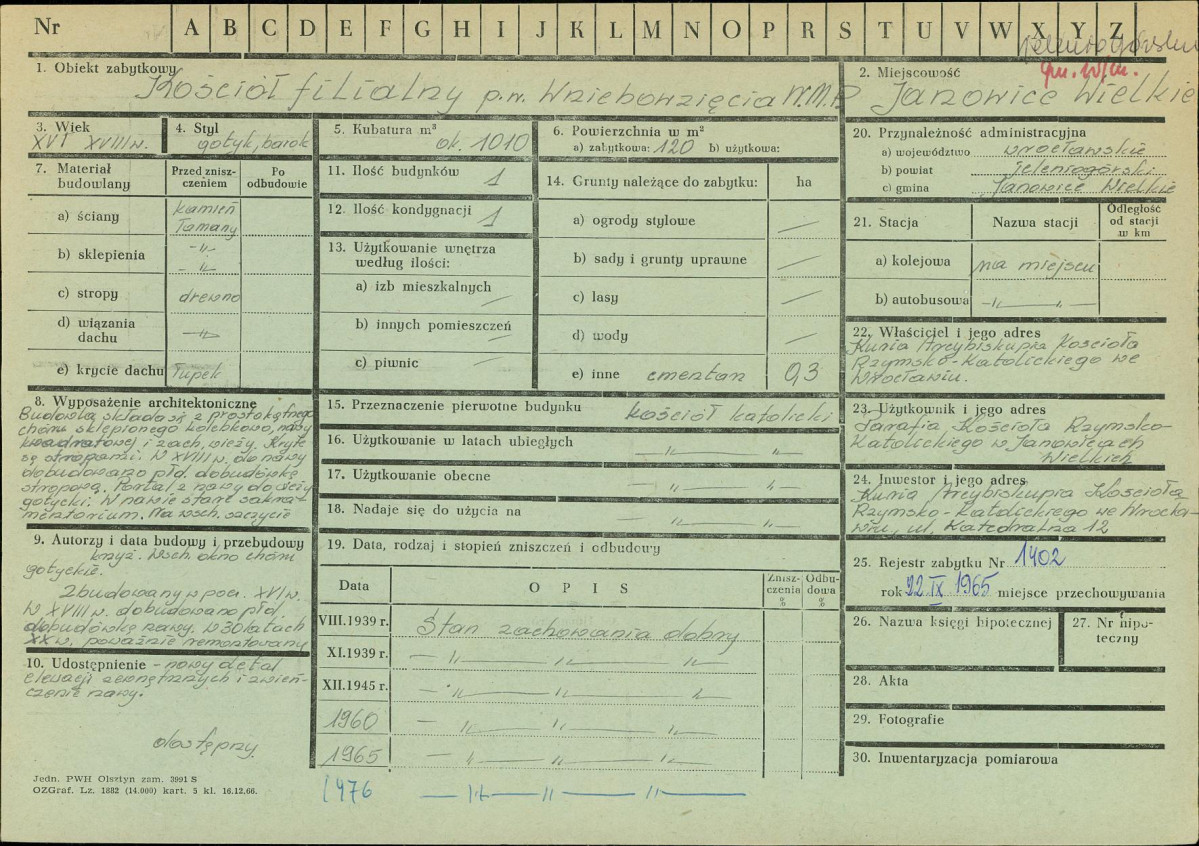 Nr A B C D E F G H I J K L M N O P R S T U V W X Y Z
1. Obiekt zabytkowy
Kościół filialny p.w. Wniebowzięcia N.M.P
2. Miejscowość
gm. w/m.
Janowice Wielkie
3. Wiek
XVI XVIII w.
4. Styl
gotyk, barok
5. Kubatura m³
ok. 1010
6. Powierzchnia w m²
a) zabytkowa: 120 b) użytkowa:
7. Materiał budowlany
Przed zniszczeniem
Po odbudowie
a) ściany kamień
łamany
b) sklepienia -"-
-"-
c) stropy drewno
d) wiązania
dachu -"-
e) krycie dachu łupek
8. Wyposażenie architektoniczne
Budowla składa się z prostokątnego
chóru sklepionego kolebkowo, nawy
kwadratowej i zach. wieży. Kryte
są stropami. W XVIII w. do nawy
dobudowano płd. dobudówkę
stropową. Portal z nawy do wieży
gotycki. W nawie stare sakra-
mentarium. Na wsch. szczycie
9. Autorzy i data budowy i przebudowy
krzyż. Wsch. okno chóru
gotyckie.
Zbudowany w pocz. XVI w.
W XVIII w. dobudowano płd.
dobudówkę nawy. W 30 latach
XX w. poważnie remontowany
10. Udostępnienie - nowy detal
elewacji zewnętrznych i zwień-
czenie nawy.
dostępny
Jedn. PWH Olsztyn zam. 3991 S
OZGraf. Lz. 1882 (14.000) kart. 5 kl. 16.12.66.
11. Ilość budynków 1
12. Ilość kondygnacji 1
13. Użytkowanie wnętrza
według ilości:
a) izb mieszkalnych —
b) innych pomieszczeń —
c) piwnic —
14. Grunty należące do zabytku: ha
a) ogrody stylowe —
b) sady i grunty uprawne —
c) lasy —
d) wody —
e) inne cmentarz 0,3
15. Przeznaczenie pierwotne budynku kościół katolicki
16. Użytkowanie w latach ubiegłych — " — " —
17. Użytkowanie obecne — " — " —
18. Nadaje się do użycia na — " — " —
19. Data, rodzaj i stopień zniszczeń i odbudowy
Data OPIS Zniszczenia % Odbudowa %
VIII.1939 r. Stan zachowania dobry
XI.1939 r. — " — " — "
XII.1945 r. — " — " — "
1960 — " — " — "
1965 — " — " — "
1976 — " — " — " —
20. Przynależność administracyjna
a) województwo wrocławskie
b) powiat jeleniogórski
c) gmina Janowice Wielkie
21. Stacja Nazwa stacji Odległość od stacji w km
a) kolejowa na miejscu
b) autobusowa — " — " —
22. Właściciel i jego adres
Kuria Arcybiskupia Kościoła
Rzymsko-Katolickiego we
Wrocławiu.
23. Użytkownik i jego adres
Parafia Kościoła Rzymsko-
Katolickiego w Janowicach
Wielkich
24. Inwestor i jego adres
Kuria Arcybiskupia Kościoła
Rzymsko-Katolickiego we Wrocła-
wiu, ul. Katedralna 12
25. Rejestr zabytku Nr 1402
rok 22 IX 1965 miejsce przechowywania
26. Nazwa księgi hipotecznej
27. Nr hipoteczny
28. Akta
29. Fotografie
30. Inwentaryzacja pomiarowa